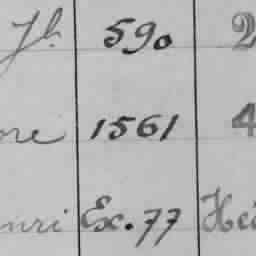 Jh 590 2
ore 1561 4
nri Ex. 77 Hei